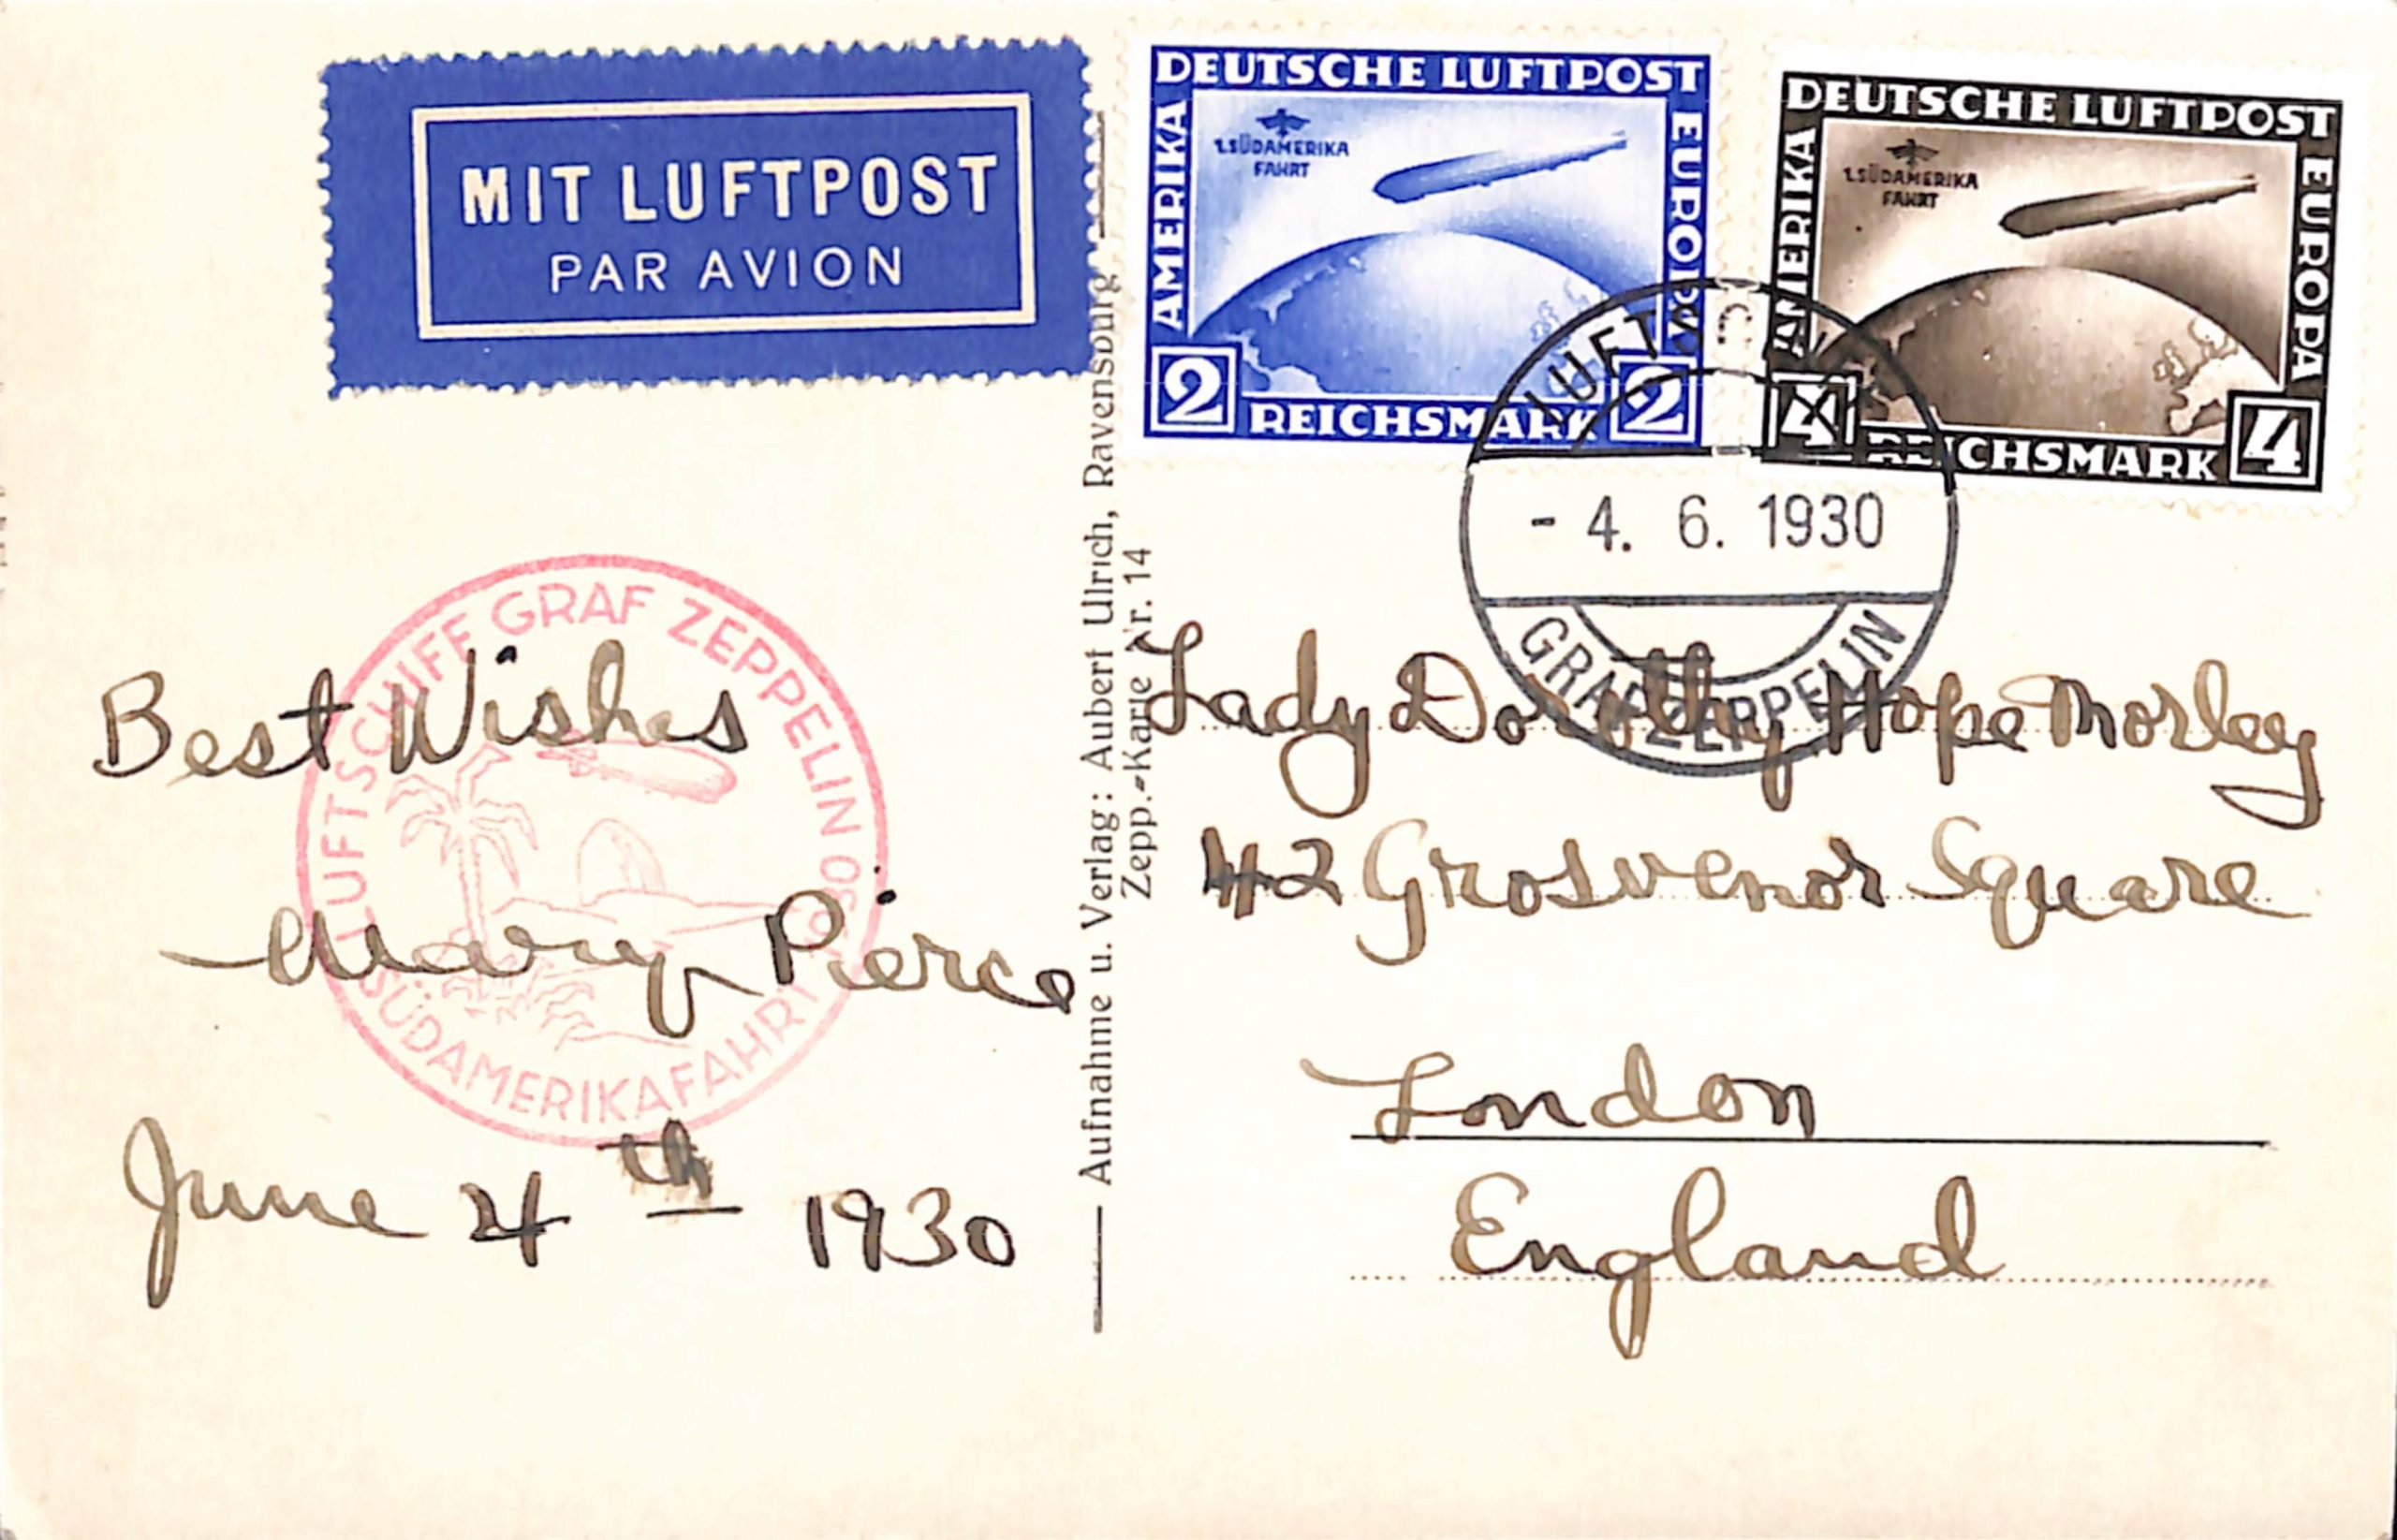 MIT LUFTPOST
PAR AVION
DEUTSCHE LUFTPOST
AMERIKA
EUROPA
1.SÜDAMERIKA
FAHRT
2 REICHSMARK 2
DEUTSCHE LUFTPOST
AMERIKA
EUROPA
1.SÜDAMERIKA
FAHRT
4 REICHSMARK 4
- 4. 6. 1930
GRAF ZEPPELIN
LUFTSCHIFF GRAF ZEPPELIN 1930
SÜDAMERIKAFAHRT
Best Wishes
Mary Pierce
June 4th 1930
Aufnahme u. Verlag: Aubert Ulrich, Ravensburg
Zepp.-Karte Nr. 14
Lady Dorothy Hope Morley
#2 Grosvenor Square
London
England